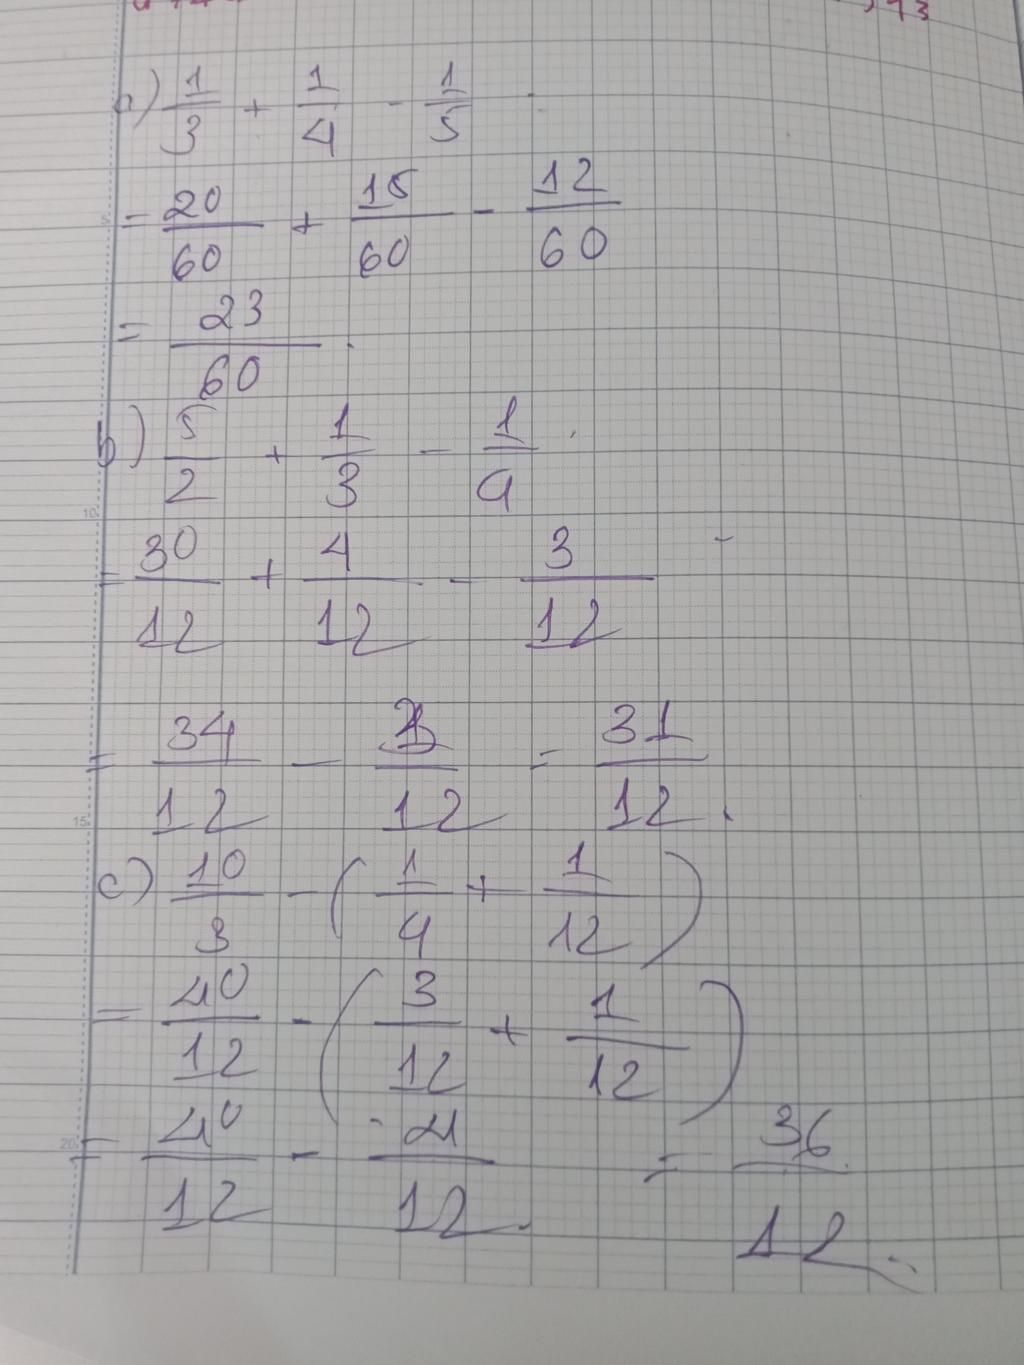 a) 1/3 + 1/4 - 1/5
= 20/60 + 15/60 - 12/60
= 23/60 .
b) 5/2 + 1/3 - 1/4
= 30/12 + 4/12 - 3/12
= 34/12 - 3/12 = 31/12 .
c) 10/3 - (1/4 + 1/12)
= 40/12 - (3/12 + 1/12)
= 40/12 - 4/12 = 36/12